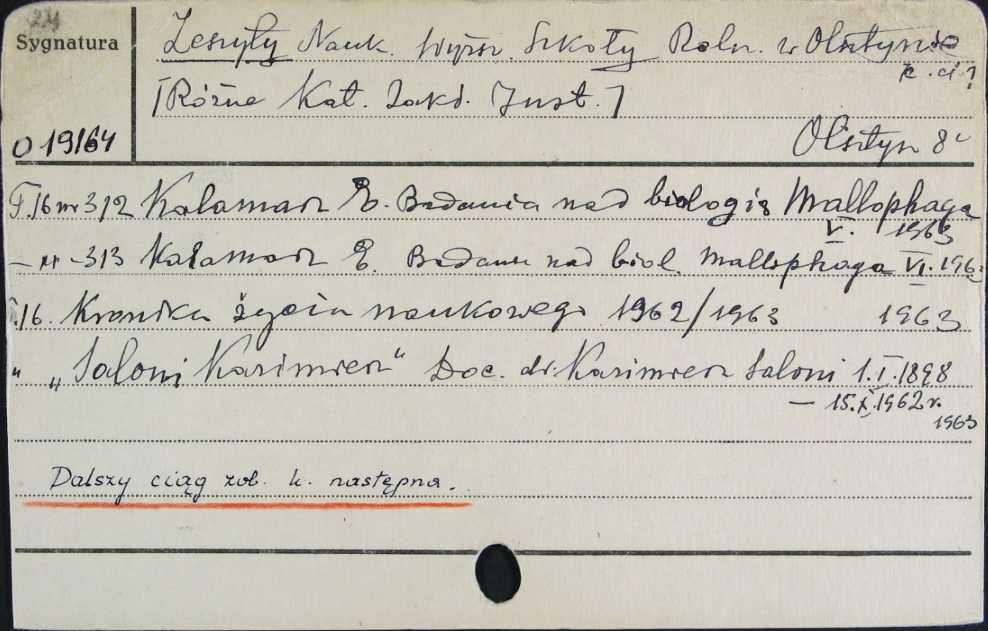 Sygnatura
Zeszyty Nauk. Wyższ. Szkoły Roln. w Olsztynie
[Różne Kat. Zakł. Inst.]
O 19/64
Olsztyn 8°
T.16 nr 312 Kalamarz E. Badania nad biologią Mallophaga
V. 1963
— „ — 313 Kalamarz E. Badania nad biol. Mallophaga VI. 1963
T.16. Kronika życia naukowego 1962/1963 1963
" „Saloni Kazimierz" Doc. dr. Kazimierz Saloni 1.I.1898
— 15.X.1962 r.
1963
Dalszy ciąg zob. k. następna.